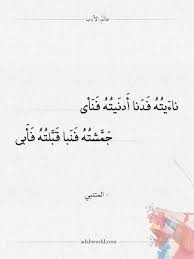 عالم الأدب
نَاءَيْتُهُ فَدَنا أَدنَيتُهُ فَنَأى
جَمَّشتُهُ فَنَبا قَبَّلتُهُ فَأَبى
- المتنبي
adabworld.com